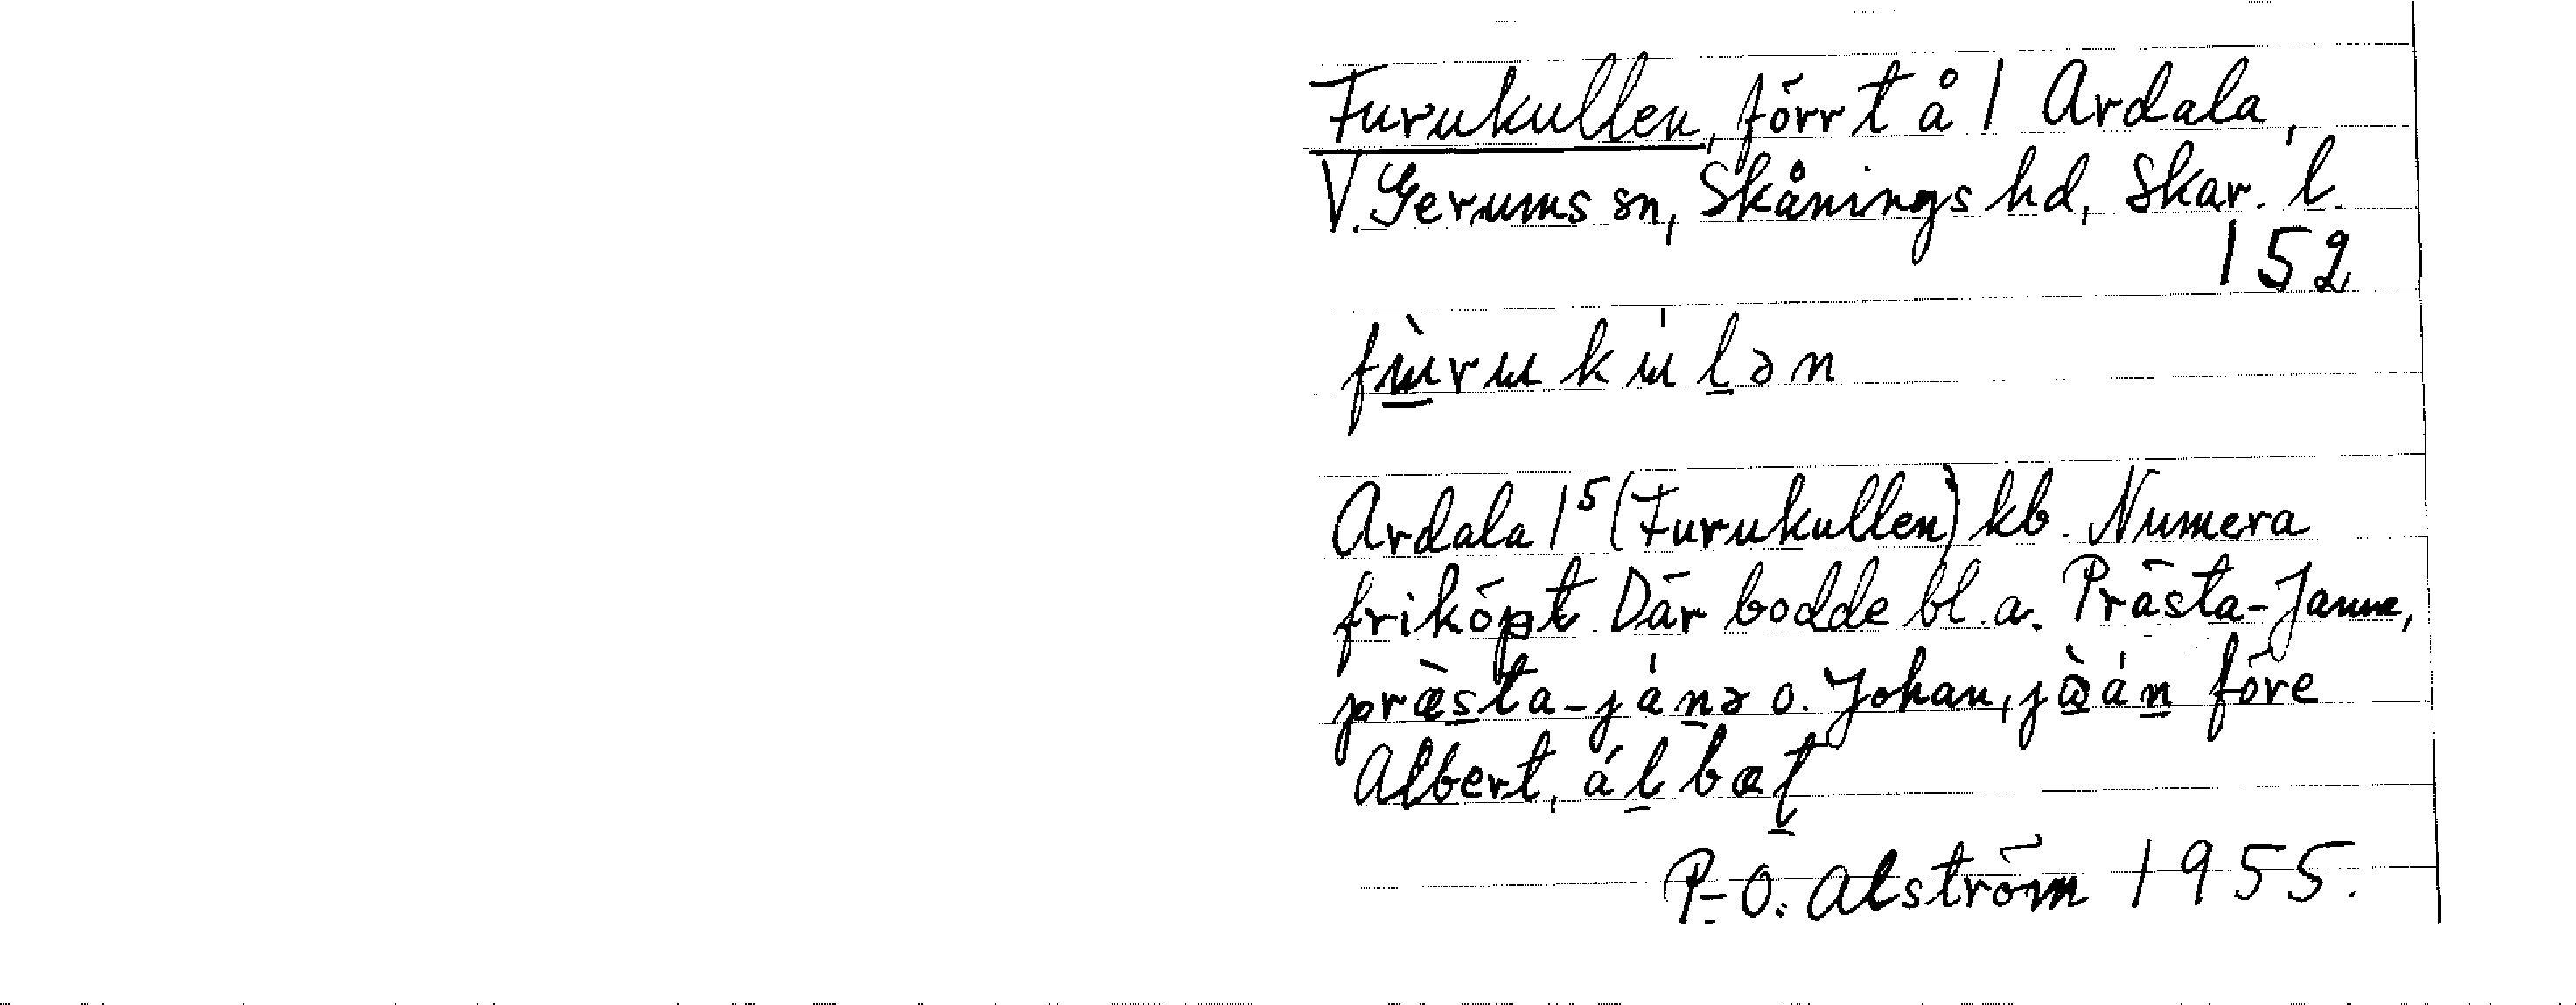 Furukullen, förr t å 1 Ardala,
V. Gerums sn, Skånings hd, Skar. l.
152
fɯ̀rɯkɯ́lən
Ardala 1⁵ (Furukullen) kb. Numera
friköpt. Där bodde bl. a. Prästa-Janne,
præ̀sta-jánə o. Johan, före
Albert,
P-O. Alström 1955.